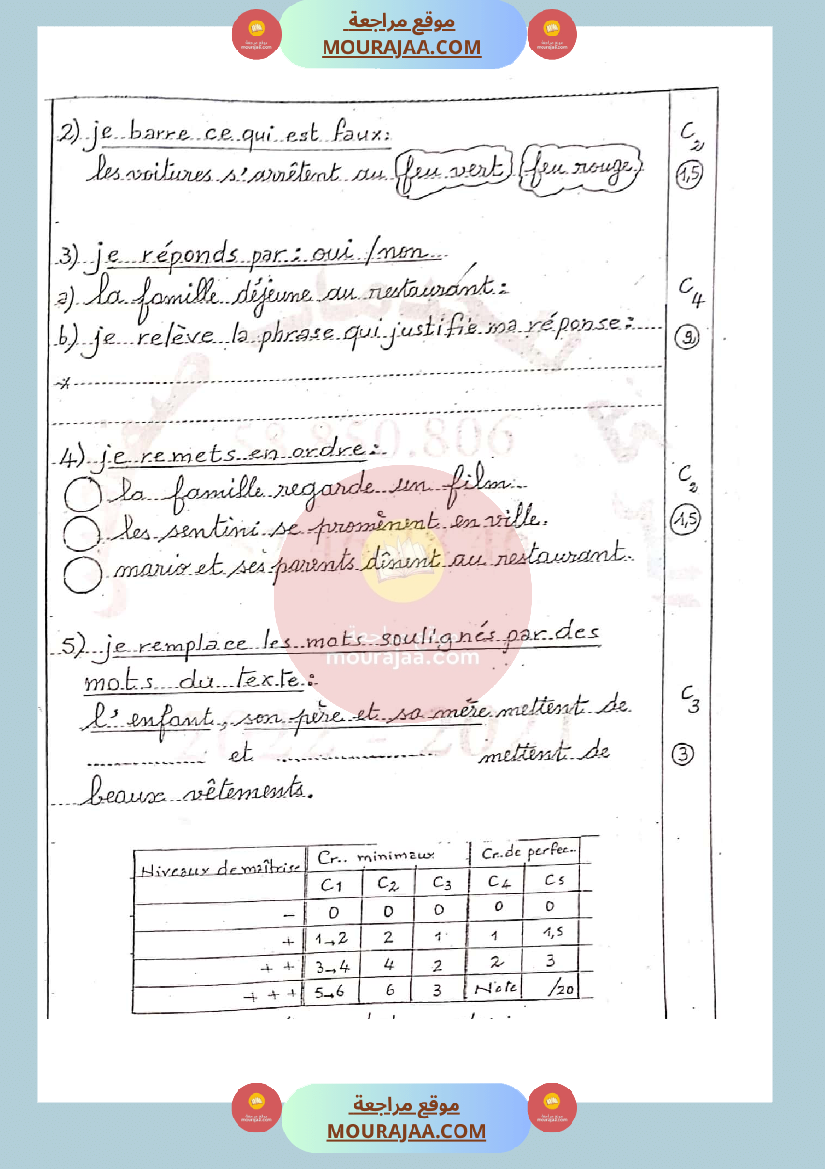 موقع مراجعة
MOURAJAA.COM
2) je barre ce qui est faux:
les voitures s'arrêtent au feu vert feu rouge
C2
1,5
3) je réponds par: oui / non
a) la famille déjeune au restaurant:
b) je relève la phrase qui justifie ma réponse:
C4
4) je remets en ordre:
la famille regarde un film.
les sentini se promènent en ville.
mario et ses parents dînent au restaurant.
C2
1,5
موقع مراجعة
mourajaa.com
5) je remplace les mots soulignés par des
mots du texte:
l'enfant, son père et sa mère mettent de
et mettent de
beaux vêtements.
C3
3
Niveaux de maîtrise Cr.. minimaux Cr. de perfec..
C1 C2 C3 C4 C5
- 0 0 0 0 0
+ 1→2 2 1 1 1,5
++ 3→4 4 2 2 3
+++ 5→6 6 3 Note /20
موقع مراجعة
MOURAJAA.COM